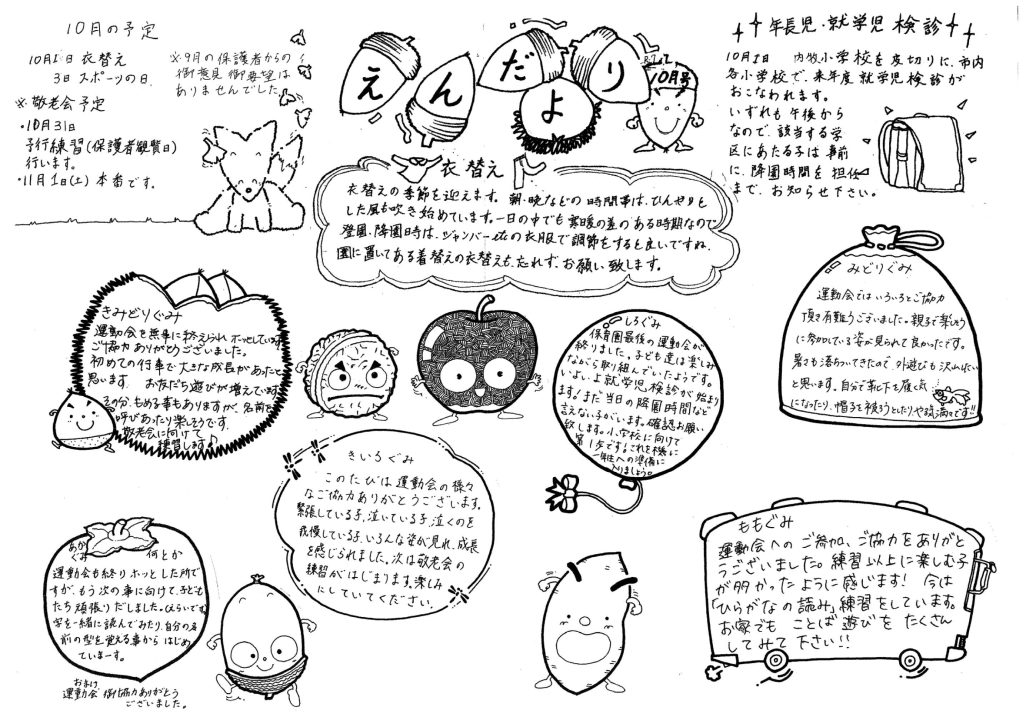 10月の予定
10月1日 衣替え
3日 スポーツの日
※9月の保護者からの
御意見 御要望は
ありませんでした。
※敬老会予定
・10月31日
予行練習(保護者観覧日)
行います。
・11月1日(土) 本番です。
えんだより
10月号
年長児・就学児 検診
10月2日 内牧小学校を皮切りに、市内
各小学校で、来年度就学児検診が
おこなわれます。
いずれも 午後から
なので、該当する学
区にあたる子は 事前
に、降園時間を 担任
まで、お知らせ下さい。
衣替え
衣替えの季節を迎えます。朝・晩などの時間帯は、ひんやりと
した風も吹き始めています。一日の中でも寒暖の差のある時期なので
登園、降園時は、ジャンバーetcの衣服で調節をすると良いですね。
園に置いてある着替えの衣替えも、忘れず、お願い致します。
きみどりぐみ
運動会を無事に終えられ ホッとしています
ご協力 ありがとうございました。
初めての行事で大きな成長があったと
思います。 お友だち遊びが 増えています
その分、もめる事もありますが、名前を
呼びあったり楽しそうです。
敬老会に向けて
練習します♪
しろぐみ
保育園最後の運動会が
終りました。子ども達は楽しみ
ながら取り組んでいたようです。
いよいよ就学児検診が始まり
ます。まだ当日の降園時間など
言えない子がいます。確認お願い
致します。小学校に向けて
第1歩です!これを機に
一年生への準備に
入りましょう。
みどりぐみ
運動会ではいろいろとご協力
頂き有難うございました。親子で楽しそう
に参加している姿が見られて良かったです。
暑さも落ちついてきたので、外遊びも沢山したい
と思います。自分で靴下を履く気
になったり、帽子を被ろうとしたりやる気満々です!!
きいろぐみ
このたびは運動会の様々
なご協力ありがとうございます。
緊張している子、泣いている子、泣くのを
我慢している子、いろんな姿が見れ、成長
を感じられました。次は敬老会の
練習がはじまります。楽しみ
にしていてください。
あかぐみ 何とか
運動会も終り ホッとした所で
すが、もう次の事に向けて、子ども
たち頑張りだしました。ひらいで
字を一緒に読んでみたり、自分の名
前の型を覚える事から はじめ
ていまーす。
おまけ
運動会 御協力ありがとう
ございました。
ももぐみ
運動会への ご参加、ご協力を ありがと
うございました。練習以上に楽しむ子
が多かったように感じます! 今は
「ひらがなの読み」練習をしています。
お家でも ことば遊びを たくさん
してみて 下さい!!